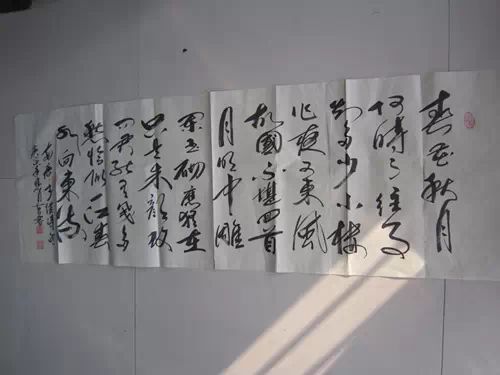 春花秋月
何時了往事
知多少小樓
昨夜又東風
故國不堪回首
月明中雕
闌玉砌應猶在
只是朱顏改
問君能有幾多
愁恰似一江春
水向東流
南唐李煜